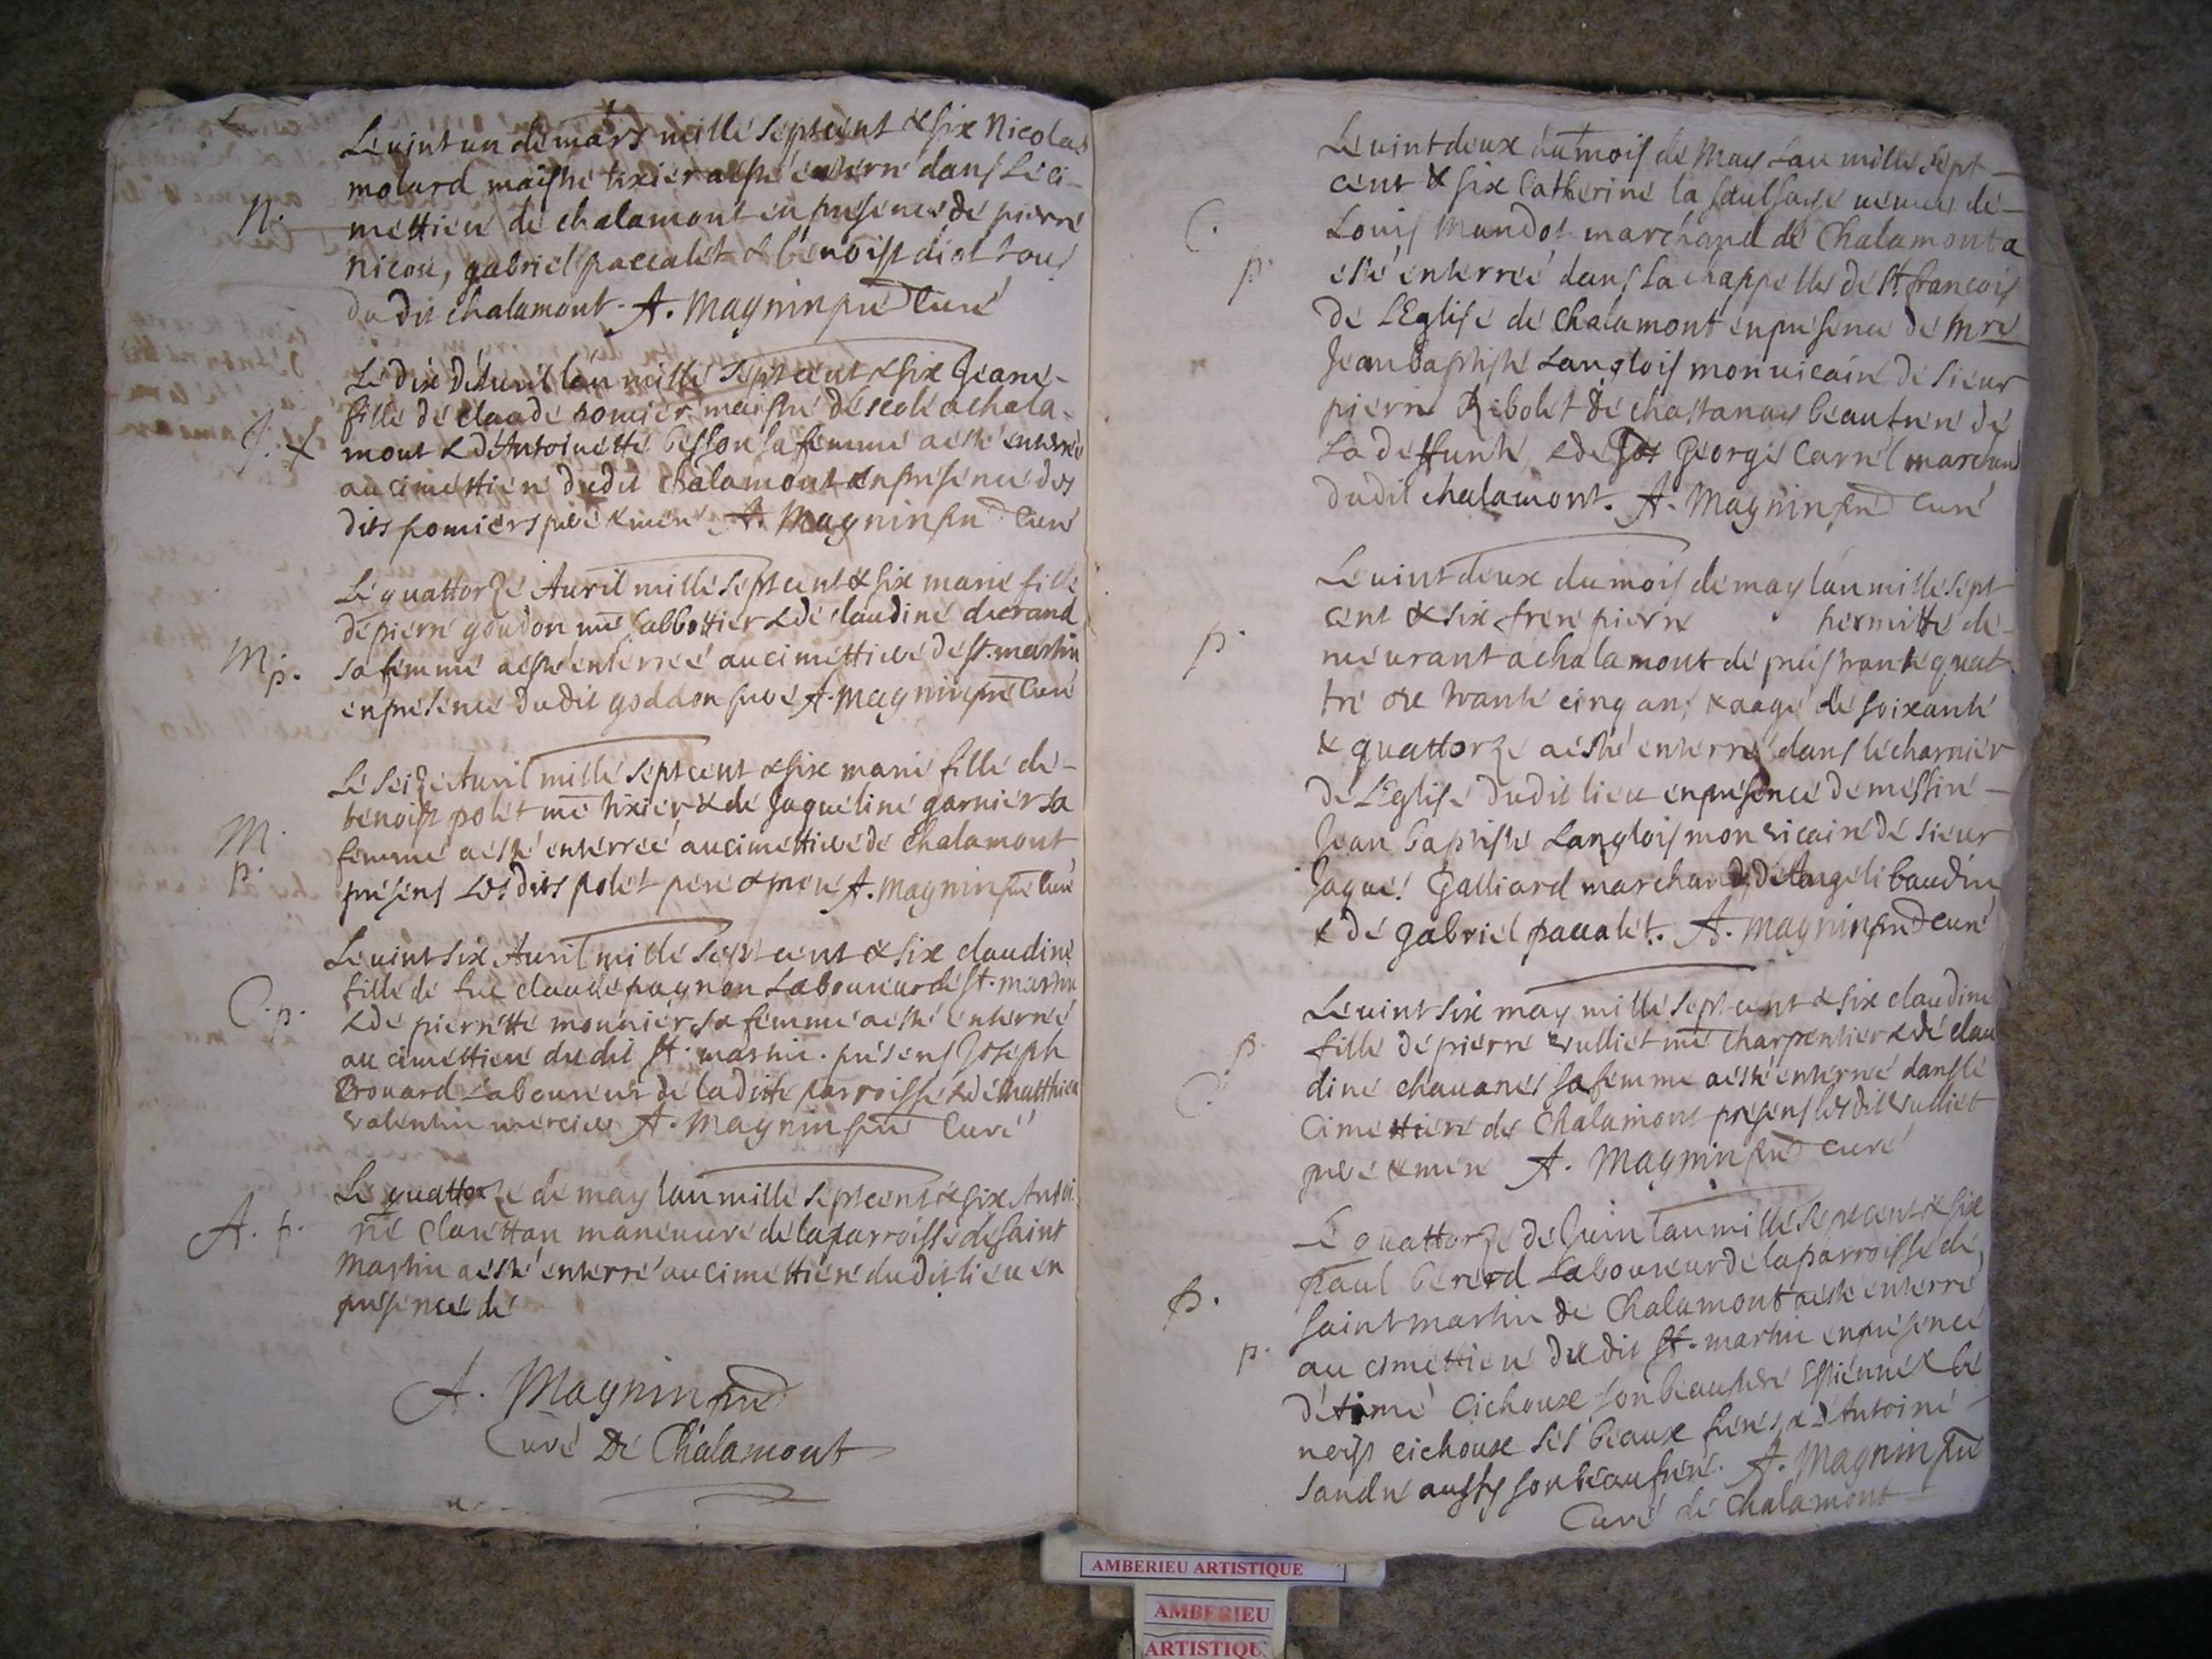 Le vint un de mars mille sept cent & six Nicolas
molard maistre tixier a esté enterré dans le ci-
N.
mettiere de chalamont en presence de pierre
Nicou, gabriel paccalet & benoist diot tous
du dit chalamont. A. Magnin pre Curé
Le dix d'Avril l'an mille sept cent & six Jeane
fille de claude pomier maistre d'escole a chala-
J.
mont & d'Antoinette besson sa femme a esté enterrée
au cimettiere dudit chalamont en presence des
dits pomiers pere & mere A. Magnin pre Curé
Le quattorze Avril mille sept cent & six marie fille
de pierre goddon me sabbottier & de claudine
M.
p.
sa femme a esté enterreé au cimettiere de st. martin
en presence dudit goddon pere A. Magnin pre Curé
Le seize Avril mille sept cent & six marie fille de
benoist polet me tixier & de Jaqueline garnier sa
M.
femme a esté enterreé au cimettiere de Chalamont
p.
presens les dits polet pere & mere A. Magnin pre Curé
Le vint six Avril mille sept cent & six claudine
fille de feu claude pagnon Laboureur de st. martin
C. p.
& de pierrette mounier sa femme a esté enterreé
au cimettiere du dit st. martin. presens Joseph
Brouard Laboureur de la ditte parroisse & de Matthieu
Valentin mercier A. Magnin pre Curé
Le quattorze de may l'an mille sept cent & six Antoi-
A. p.
ne Clarettan maneuvre de la parroisse de saint
Martin a esté enterré au cimettiere dudit lieu en
presence de
A. Magnin pre
Curé De Chalamont
Le vint deux du mois de May L'an mille sept
cent & six Catherine la saulsaye veuve de
C.
Louis Mandot marchand de Chalamont a
p.
esté enterreé dans la chappelle de st. francois
de L'Eglise de Chalamont en presence de Mre
Jean baptiste Langlois mon vicaire, de sieur
pierre Ribolet de chastanay beaufrere de
La deffunte, & de George Carrel marchand
dudit chalamont. A. Magnin pre Curé
Le vint deux du mois de may l'an mille sept
cent & six frere pierre hermitte de-
p.
meurant a chalamont depuis trante quat-
tre ou trante cinq ans & aagé de soixante
& quattorze a esté enterré dans le charnier
de L'Eglise dudit lieu en presence de messire
Jean baptiste Langlois mon vicaire de sieur
Jaques Galliard marchand, d'Angeli baudin
& de gabriel paccalet. A. Magnin pre Curé
Le vint six may mille sept cent & six claudine
p.
fille de pierre vulliet me charpentier & de clau
C.
dine chavanes sa femme a esté enterreé dans le
Cimettiere de Chalamont presens les dit vulliet
pere & mere A. Magnin pre Curé
Le quattorze de Juin l'an mille sept cent & six
paul bererd Laboureur de la parroisse de
p.
saint martin de Chalamont a esté enterré
p.
au cimettiere dudit st. martin en presence
cichoux son beaupere Estienne & be
noist cichoux ses beaux freres & d'Antoine
sandre aussy son beaufrere. A. Magnin pre
Curé de Chalamont
AMBERIEU ARTISTIQUE
AMBERIEU
ARTISTIQUE